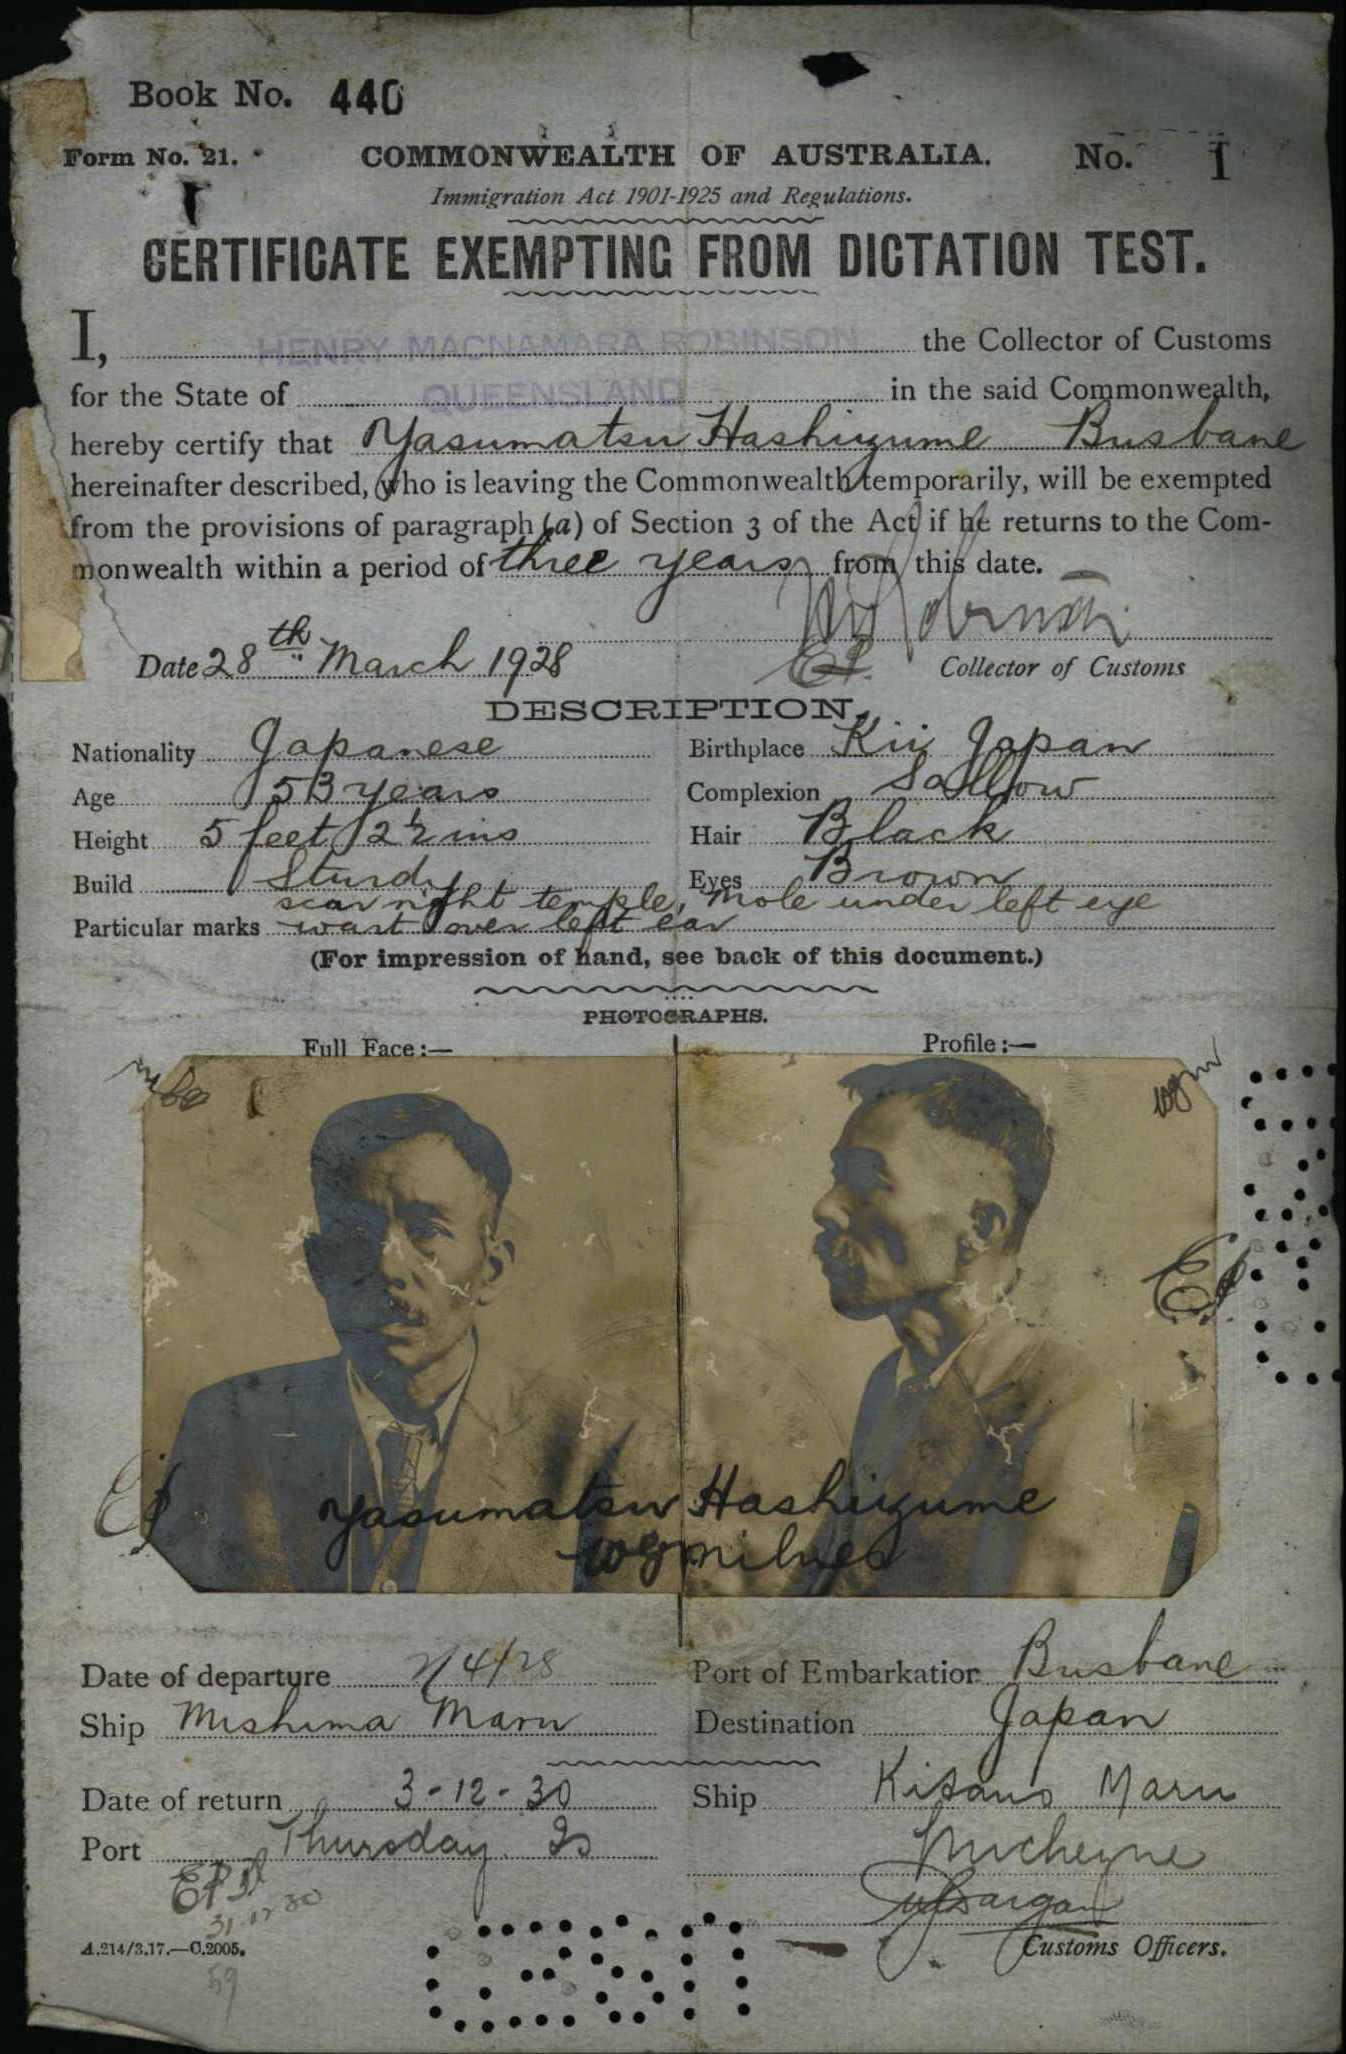 Book No. 440
Form No. 21. COMMONWEALTH OF AUSTRALIA. No. 1
Immigration Act 1901-1925 and Regulations.
CERTIFICATE EXEMPTING FROM DICTATION TEST.
I, HENRY MACNAMARA ROBINSON the Collector of Customs
for the State of QUEENSLAND in the said Commonwealth,
hereby certify that Yasumatsu Hashizume Brisbane
hereinafter described, who is leaving the Commonwealth temporarily, will be exempted
from the provisions of paragraph (a) of Section 3 of the Act if he returns to the Com-
monwealth within a period of three years from this date.
Date 28th March 1928 Collector of Customs
DESCRIPTION.
Nationality Japanese Birthplace Kii Japan
Age 53 years Complexion Sallow
Height 5 feet 2½ ins Hair Black
Build Sturdy Eyes Brown
scar right temple, mole under left eye
Particular marks wart over left ear
(For impression of hand, see back of this document.)
PHOTOGRAPHS.
Full Face:— Profile:—
wgm
Yasumatsu Hashizume
wgmilnes
Date of departure 2/4/28 Port of Embarkation Brisbane
Ship Mishima Maru Destination Japan
Date of return 3-12-30 Ship Kitano Maru
Port Thursday Is
31 12 30
A.214/3.17.—C.2005. Customs Officers.
59